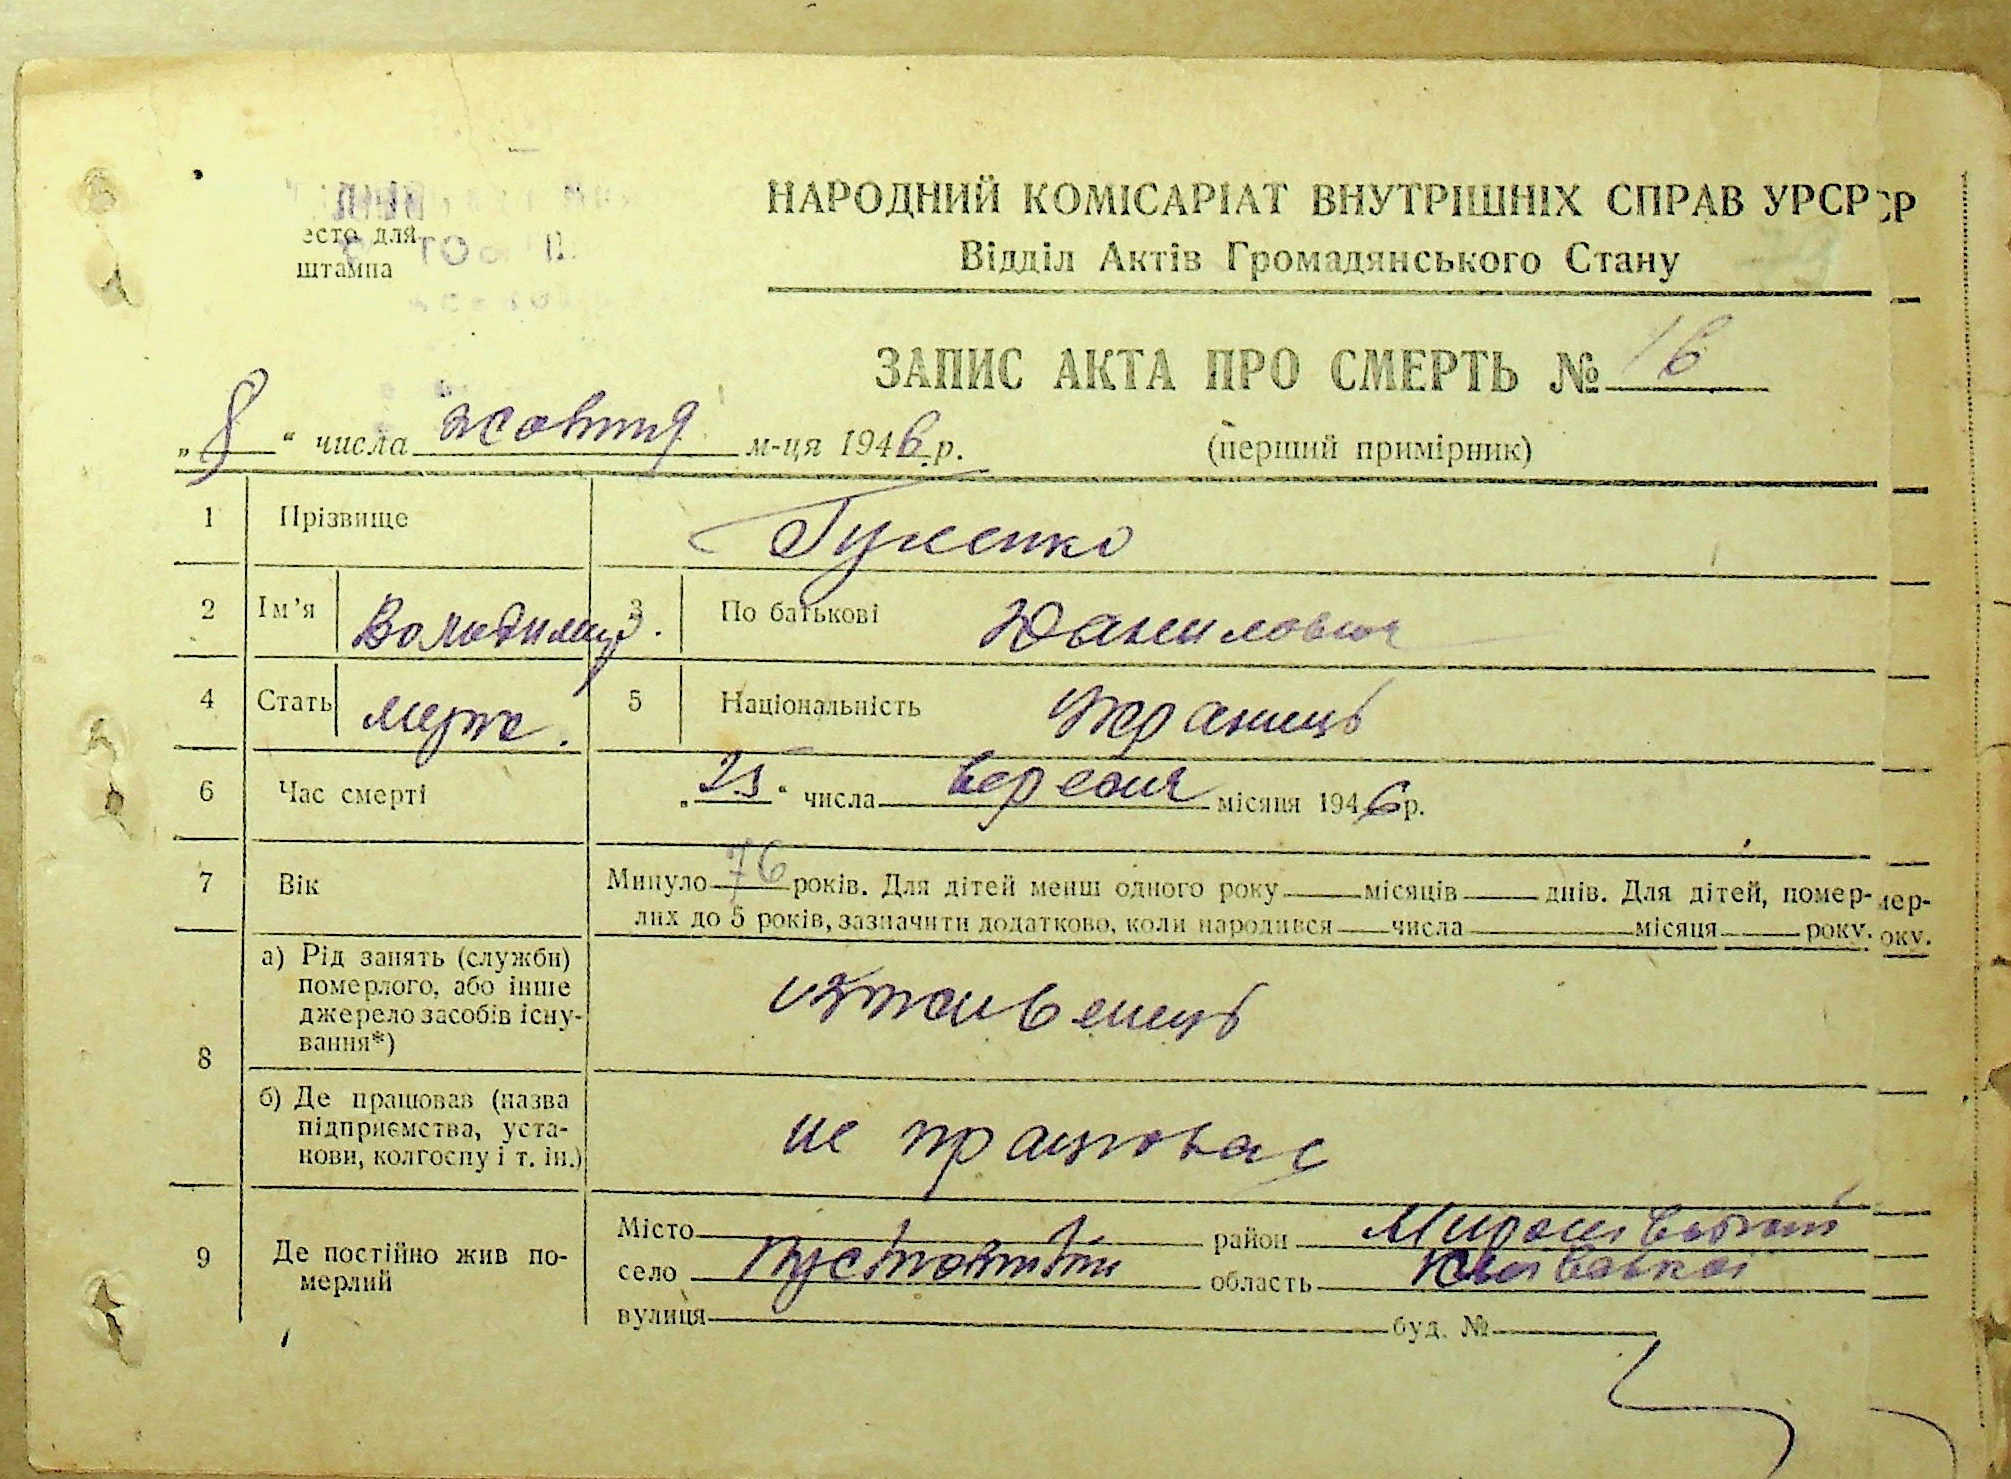 есто для
штампа
НАРОДНИЙ КОМІСАРІАТ ВНУТРІШНІХ СПРАВ УРСР
Відділ Актів Громадянського Стану
ЗАПИС АКТА ПРО СМЕРТЬ № 16
„8“ числа жовтня м-ця 1946 р.
(перший примірник)
1 Прізвище
2 Ім'я Володимир. 3 По батькові Данилович
4 Стать муж. 5 Національність Українець
6 Час смерті „25“ числа вересня місяця 1946 р.
7 Вік Минуло 76 років. Для дітей менш одного року місяців днів. Для дітей, помер-
лих до 5 років, зазначити додатково, коли народився числа місяця року.
8 а) Рід занять (служби)
померлого, або інше
джерело засобів існу-
вання*)
утриманець
б) Де працював (назва
підприємства, уста-
нови, колгоспу і т. ін.)
не працював
9 Де постійно жив по-
мерлий
Місто район Миронівський
село область Київської
вулиця буд. №